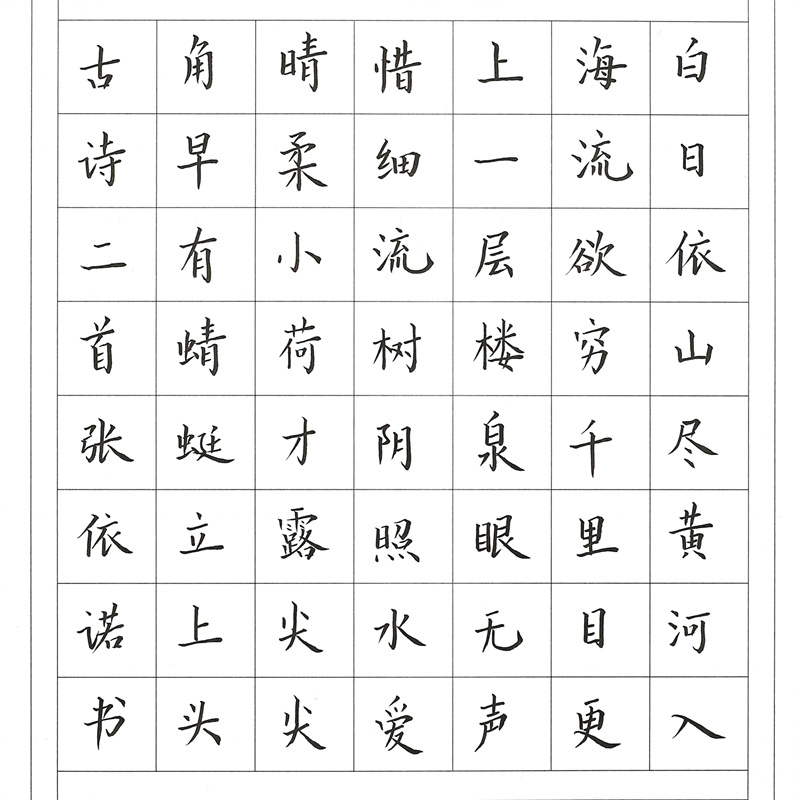 白日依山尽黄河入
海流欲穷千里目更
上一层楼泉眼无声
惜细流树阴照水爱
晴柔小荷才露尖尖
角早有蜻蜓立上头
古诗二首张依诺书